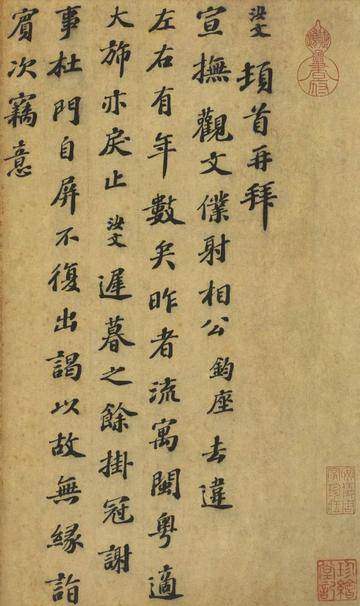 汝文頓首再拜
宣撫觀文僕射相公鈞座去違
左右有年數矣昨者流寓閩粵適
大斾亦戾止汝文遲暮之餘掛冠謝
事杜門自屏不復出謁以故無緣詣
賓次竊意